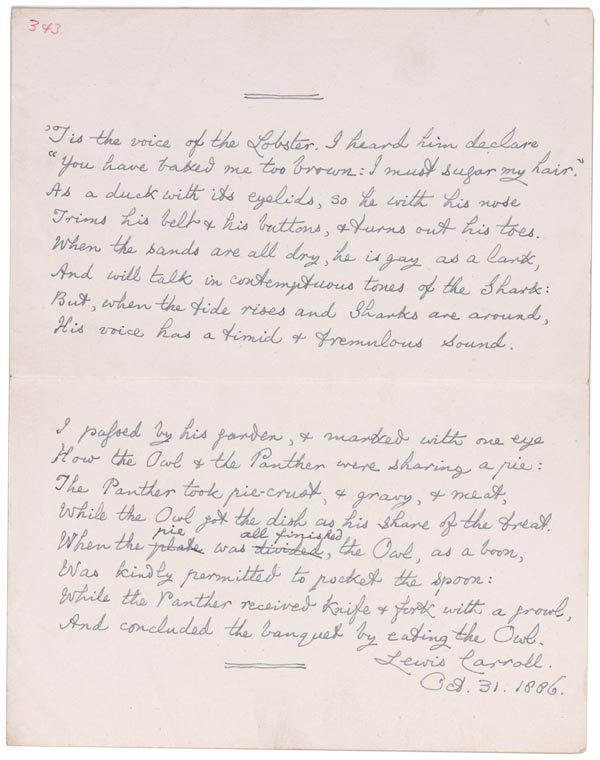 343
'Tis the voice of the Lobster. I heard him declare
"You have baked me too brown: I must sugar my hair."
As a duck with its eyelids, so he with his nose
Trims his belt & his buttons, & turns out his toes.
When the sands are all dry, he is gay as a lark,
And will talk in contemptuous tones of the Shark:
But, when the tide rises and Sharks are around,
His voice has a timid & tremulous sound.
I passed by his garden, & marked with one eye
How the Owl & the Panther were sharing a pie:
The Panther took pie-crust, & gravy, & meat,
While the Owl got the dish as his share of the treat.
pie all finished
When the plate was divided, the Owl, as a boon,
Was kindly permitted to pocket the spoon:
While the Panther received knife & fork with a growl,
And concluded the banquet by eating the Owl.
Lewis Carroll.
Oct. 31. 1886.